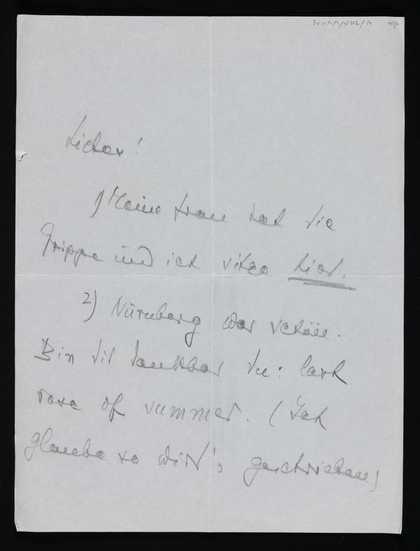 Lieber!
1) Meine Frau hat die
Grippe und ich sitze hier.
2) Nürnberg war schön.
Bin dir dankbar die: last
rose of summer. (Ich
glaube so wird's geschrieben)